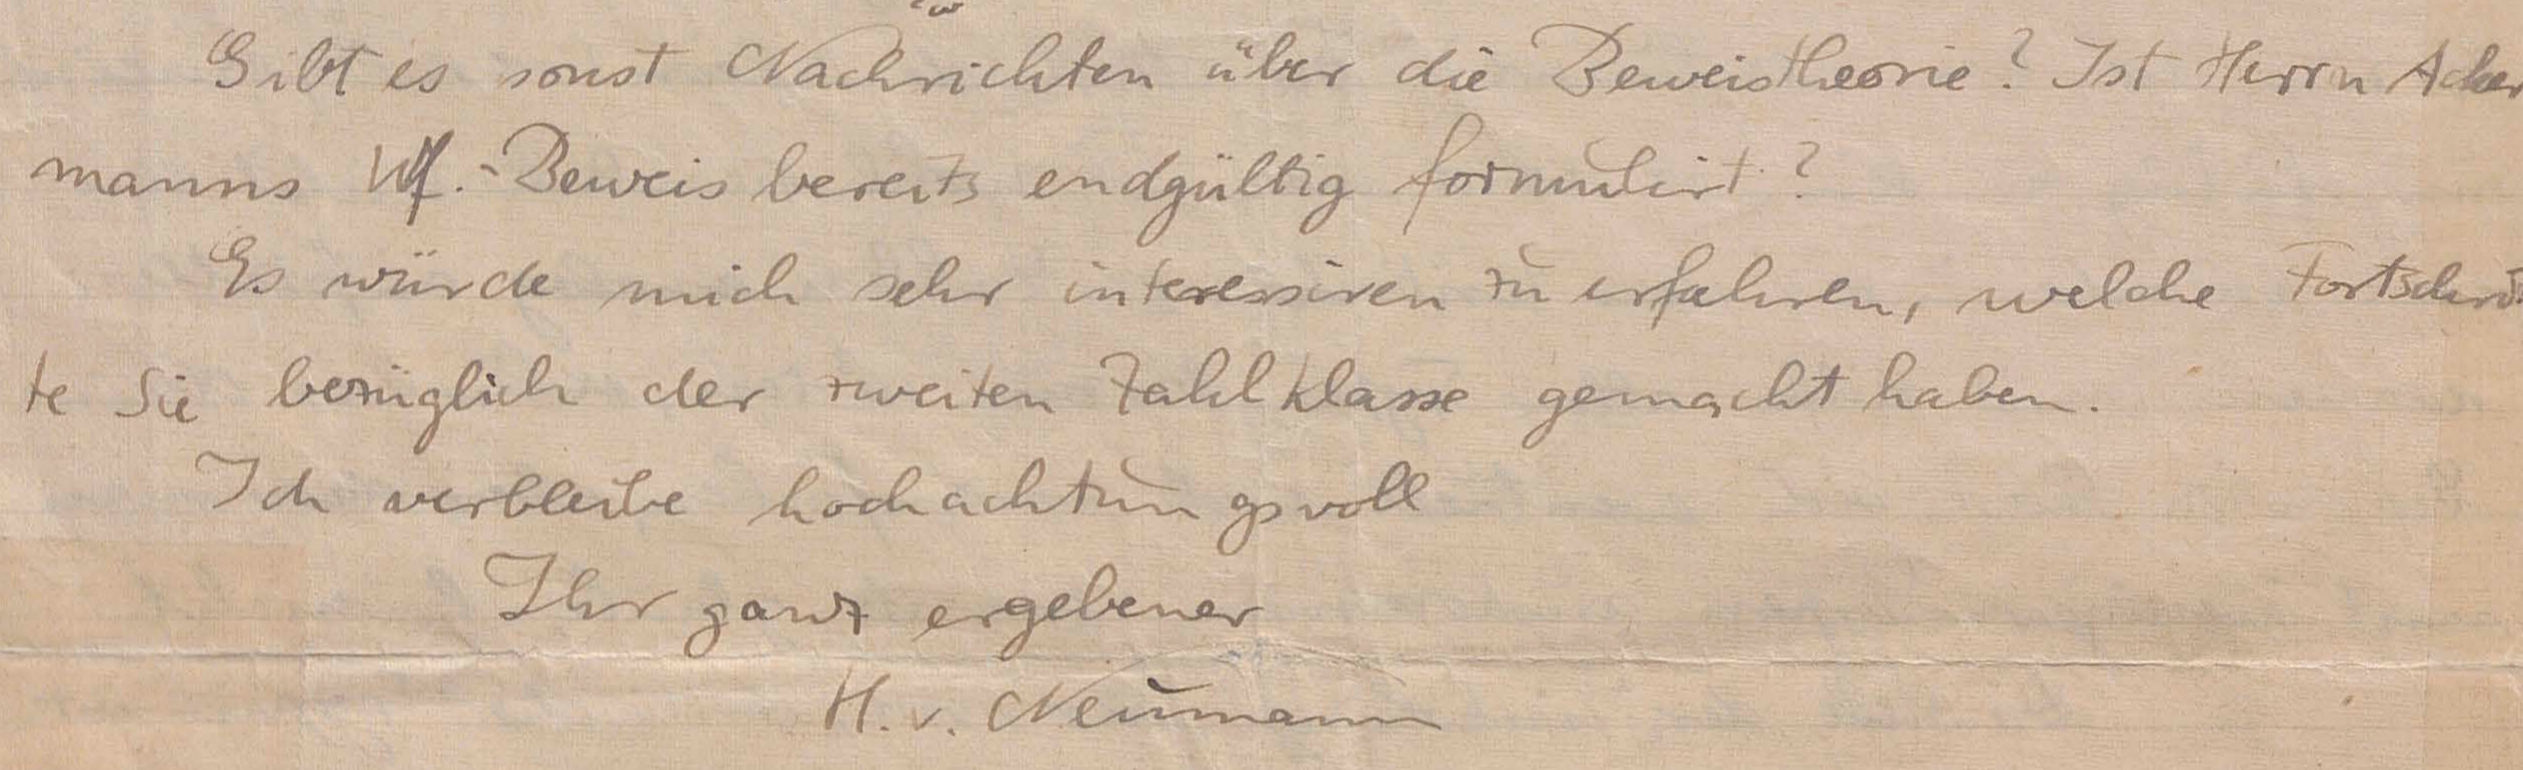 Gibt es sonst Nachrichten über die Beweistheorie? Ist Herrn Acker
manns Wf.-Beweis bereits endgültig formulirt?
Es würde mich sehr interessiren zu erfahren, welche Fortschrit
te Sie bezüglich der zweiten Zahlklasse gemacht haben.
Ich verbleibe hochachtungsvoll
Ihr ganz ergebener
H. v. Neumann